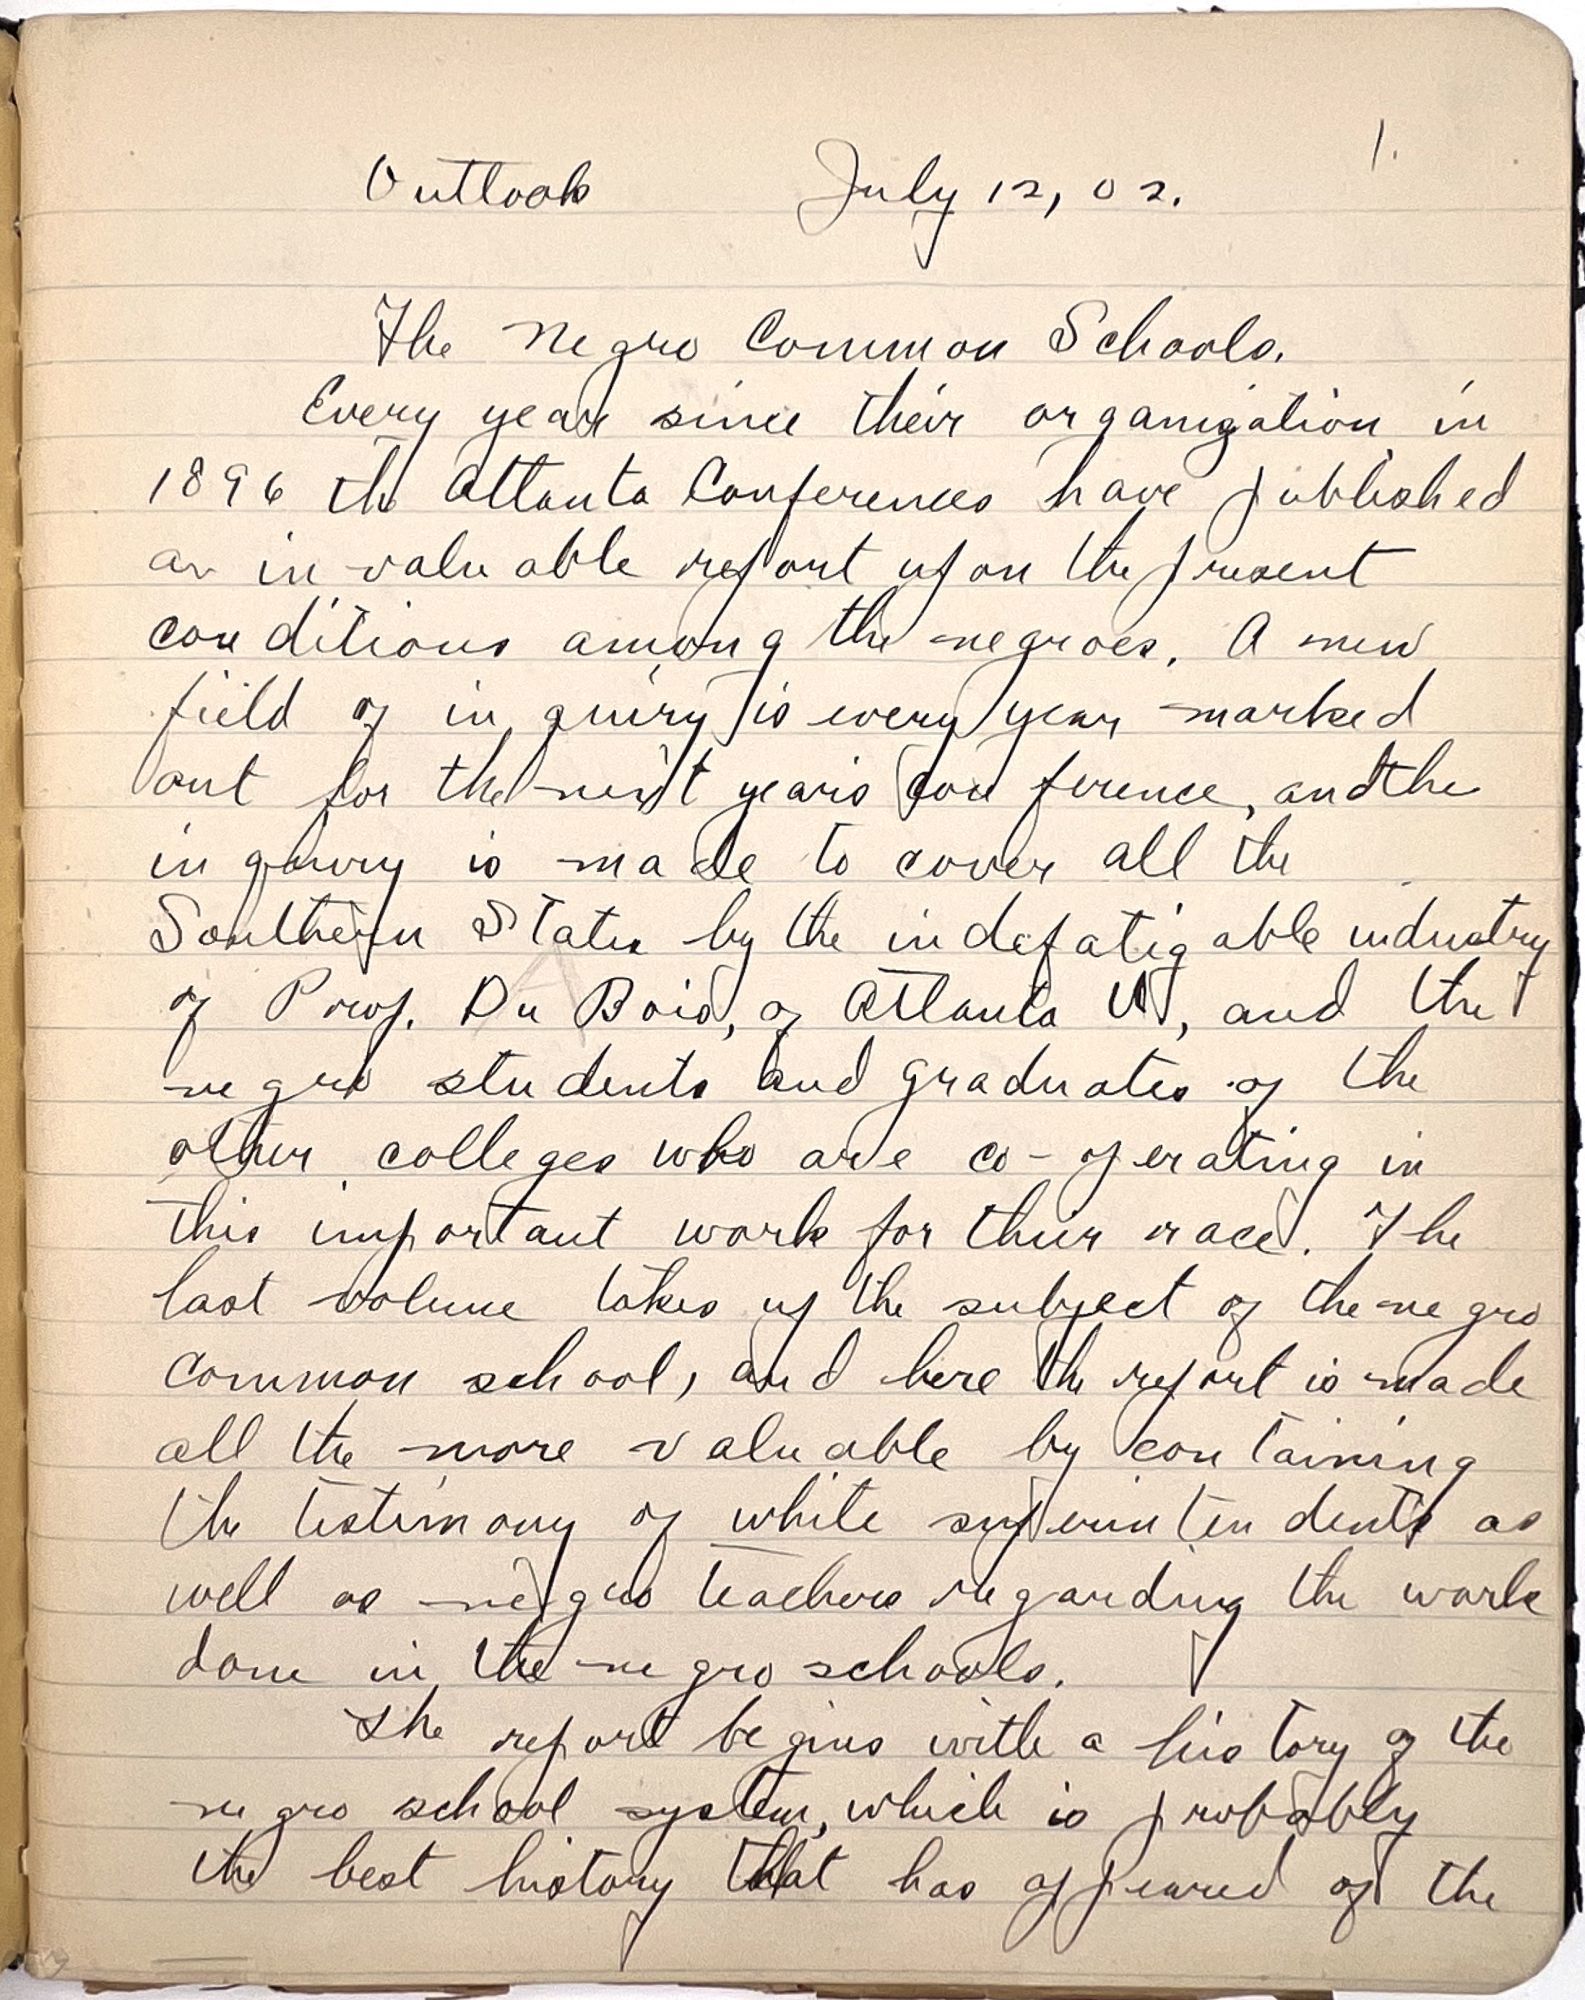 1.
Outlook July 12, 02.
The Negro Common Schools.
Every year since their organization in
1896 the Atlanta Conferences have published
an invaluable report upon the present
conditions among the negroes. A new
field of inquiry is every year marked
out for the next year's conference, and the
inquiry is made to cover all the
Southern States by the indefatigable industry
of Prof. Du Bois, of Atlanta U, and the
negro students and graduates of the
other colleges who are co-operating in
this important work for their race. The
last volume takes up the subject of the negro
common school, and here the report is made
all the more valuable by containing
the testimony of white superintendents as
well as negro teachers regarding the work
done in the negro schools.
The report begins with a history of the
negro school system, which is probably
the best history that has appeared of the